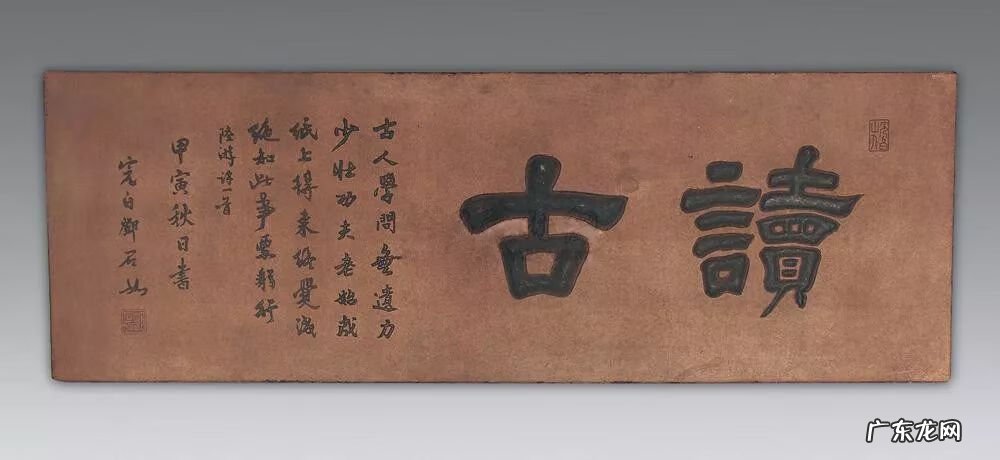 讀古
古人學問無遺力
少壯功夫老始成
紙上得来終覺淺
絶知此事要躬行
陸游詩一首
甲寅秋日書
完白鄧石如
广东龙网